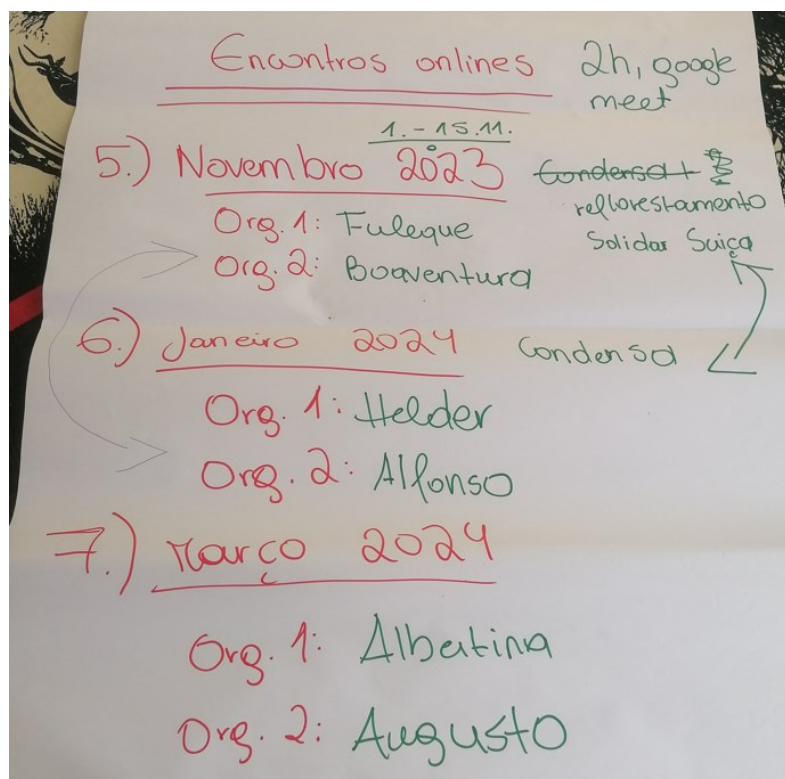 Encontros onlines 2h, google
meet
1. - 15.11.
5.) Novembro 2023 Condensat
reflorestamento
Org. 1: Fuleque Solidar Suiça
Org. 2: Boaventura
6.) Janeiro 2024 Condensa
Org. 1: Helder
Org. 2: Alfonso
7.) Março 2024
Org. 1: Albertina
Org. 2: Augusto